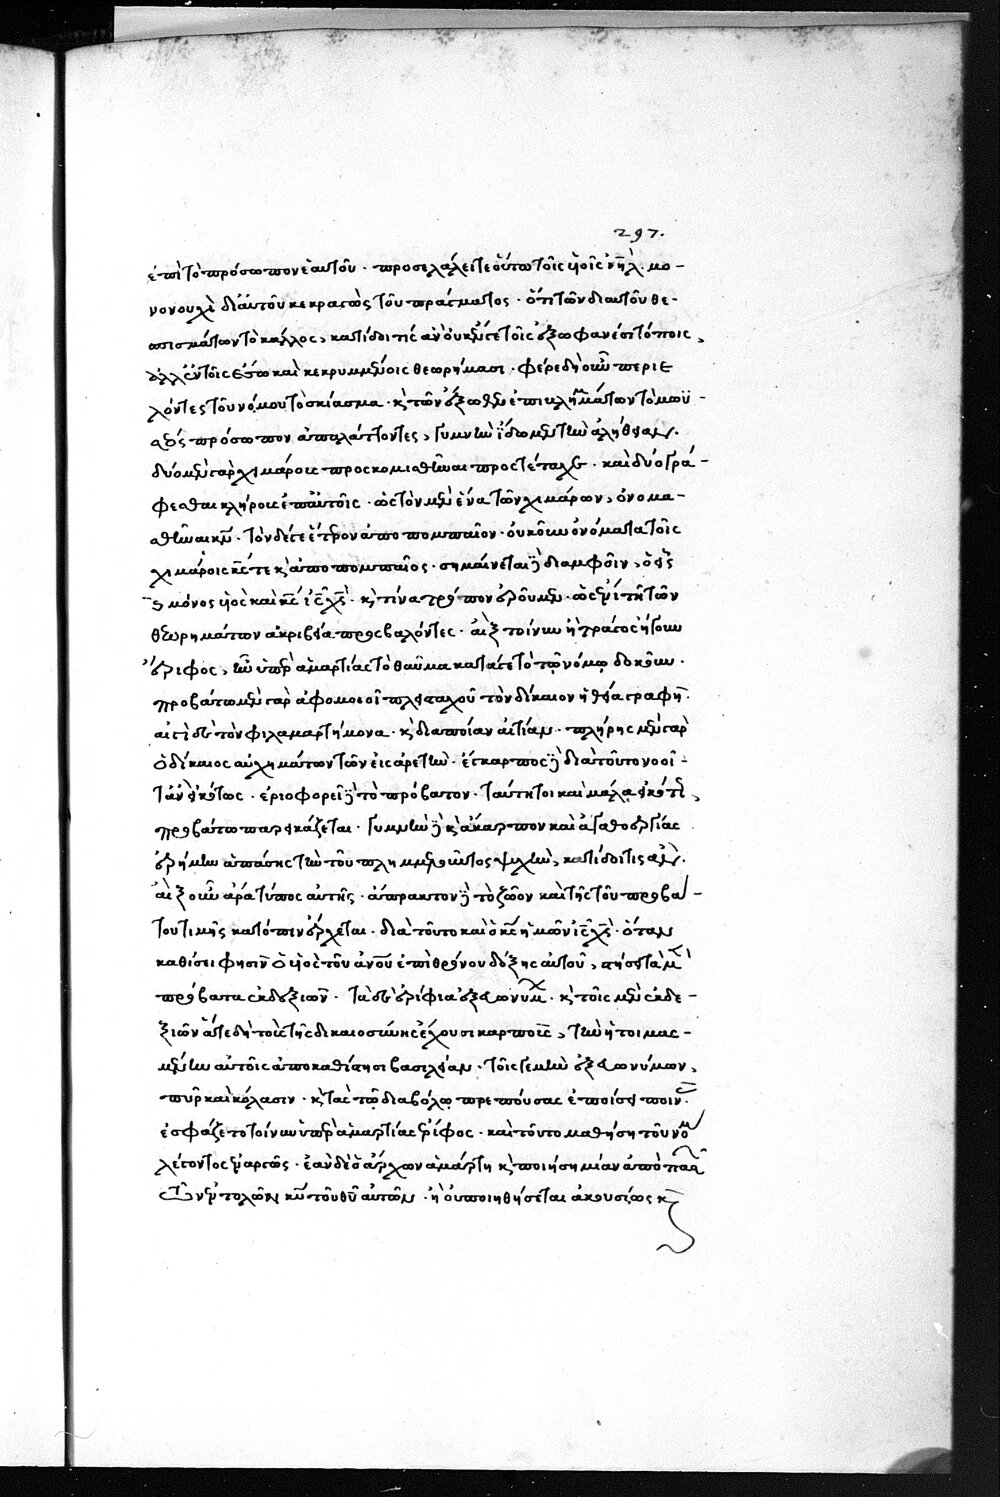 297.
ἐπὶ τὸ πρόσωπον ἑαυτοῦ · προσελάλει τε οὕτω τοῖς υἱοῖς ἰη̅λ̅ · μο-
νονουχὶ δι' αὐτοῦ κεκραγὼς τοῦ πράγματος · ὅτι τῶν δι αυτοῦ θε-
σπισμάτων τὸ κάλλος, κατίδοι τίς ἂν οὐκ ἐν γε τοῖς ἔξω φανεῖσι τύποις,
ἀλλ' ἐν τοῖς ἔσω καὶ κεκρυμμένοις θεωρήμασι · φέρε δὴ οὖν περιε
λόντες τοῦ νόμου τὸ σκίασμα · κ τῶν ἔξωθεν ἐπικλημάτων τὸ μωϋ-
σέως πρόσωπον ἀπαλάττοντες, γυμνὴν ἴδωμεν τὴν ἀλήθειαν.
δύο μὲν γὰρ χιμάρους προσκομισθῆναι προστέταχε · καὶ δύο γρά-
φεσθαι κλήρους ἐπ' αὐτοῖς · ὡς τὸν μὲν ἕνα τῶν χιμάρων, ὀνομα-
σθῆναι κ̅ν̅ · τὸν δέ γε ἕτερον ἀποπομπαῖον · οὐκοῦν ὀνόματα τοῖς
χιμάροις κ̅ς̅ τε κ ἀποπομπαῖος · σημαίνεται δὲ δι ἀμφοῖν, ὁ εἷς
κ μόνος υἱὸς καὶ κ̅ς̅ ι̅ς̅ χ̅ς̅ · κ τίνα τρόπον ἐροῦμεν · ὡς ἔνι τῇ τῶν
θεωρημάτων ἀκριβεία προσβαλόντες · αἲξ τοίνυν ἢ τράγος ἤγουν
ἔριφος, ἦν ὑπὲρ ἁμαρτίας τὸ θῦμα κατά γε τὸ τῷ νόμῳ δοκοῦν ·
προβάτω μὲν γὰρ ἀφομοιοῖ πολλαχοῦ τὸν δίκαιον ἡ θεία γραφή ·
αἰγὶ δὲ τὸν φιλαμαρτήμονα · κ διαποίαν αἰτίαν · πλήρης μὲν γὰρ
ὁ δίκαιος αὐχημάτων τῶν εἰς ἀρετὴν · ἔγκαρπος δὲ διὰ τοῦτο νοοῖ-
τ' ἂν εἰκότως · ἐριοφορεῖ δὲ τὸ πρόβατον · ταύτητοι καὶ μάλα εἰκότως,
προβάτω παρεικάζεται · γυμνὴν δὲ κ ἄκαρπον καὶ ἀγαθουργίας
ἔρημον ἁπάσης τὴν τοῦ πλημμελοῦντος ψυχὴν, κατίδοι τις ἂν.
αἲξ οὖν ἄρα τύπος αὐτῆς · ἄπρακτον δὲ τὸ ζῶον καὶ τῆς τοῦ προβά-
του τιμῆς κατόπιν ἔρχεται · διὰ τοῦτο καὶ ὁ κ̅ς̅ ἡμῶν ι̅ς̅ χ̅ς̅ · ὅταν
καθίσει φησὶν ὁ υἱὸς τοῦ ἀν̅ου̅ ἐπὶ θρόνου δόξης αὐτοῦ, στήσει τὰ μὲν
πρόβατα ἐκ δεξιῶν · τὰ δὲ ἐρίφια ἐξ εὐωνύμων · κ τοῖς μὲν ἐκ δε-
ξιῶν ἅτε δὴ τοὺς τῆς δικαιοσύνης ἔχουσι καρποὺς, τὴν ἡτοιμασ-
μένην αὐτοῖς ἀποκαθίστησι βασιλείαν · τοῖς γε μὴν ἐξ εὐωνύμων,
πῦρ καὶ κόλασιν · κ τὰς τῷ διαβόλῳ πρεπούσας ἐποίσει ποινάς ·
ἐσφάζετο τοίνυν ὑπὲρ ἁμαρτίας ἔριφος · καὶ τοῦτο μαθήση τοῦ νόμου
λέγοντος ἐναργῶς · ἐὰν δὲ ὁ ἄρχων ἁμάρτη κ ποιήση μίαν ἀπὸ πασῶν
τῶν ἐντολῶν κ̅υ̅ τοῦ θ̅υ̅ αὐτῶν · ἣ οὐ ποιηθήσεται ἀκουσίως κ